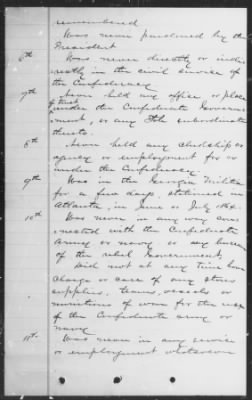 remembered
Was never pardoned by the
President
6th Was never directly or indi-
rectly in the civil service of
the Confederacy
7th Never held any office or place
of trust
under the Confederate Govern-
ment, or any subordinate
thereto.
8th Never held any clerkship or
agency or employment for or
under the Confederacy
9th Was in the Georgia Militia
for a few days stationed in
Atlanta, in June or July 1864.
10th Was never in any way con-
nected with the Confederate
Army or navy or any bureau
of the rebel Government,
Did not at any time have
Charge or care of any stores
supplies, teams, vessels or
munitions of war for the use
of the Confederate army or
navy
11th Was never in any service
or employment whatsoever